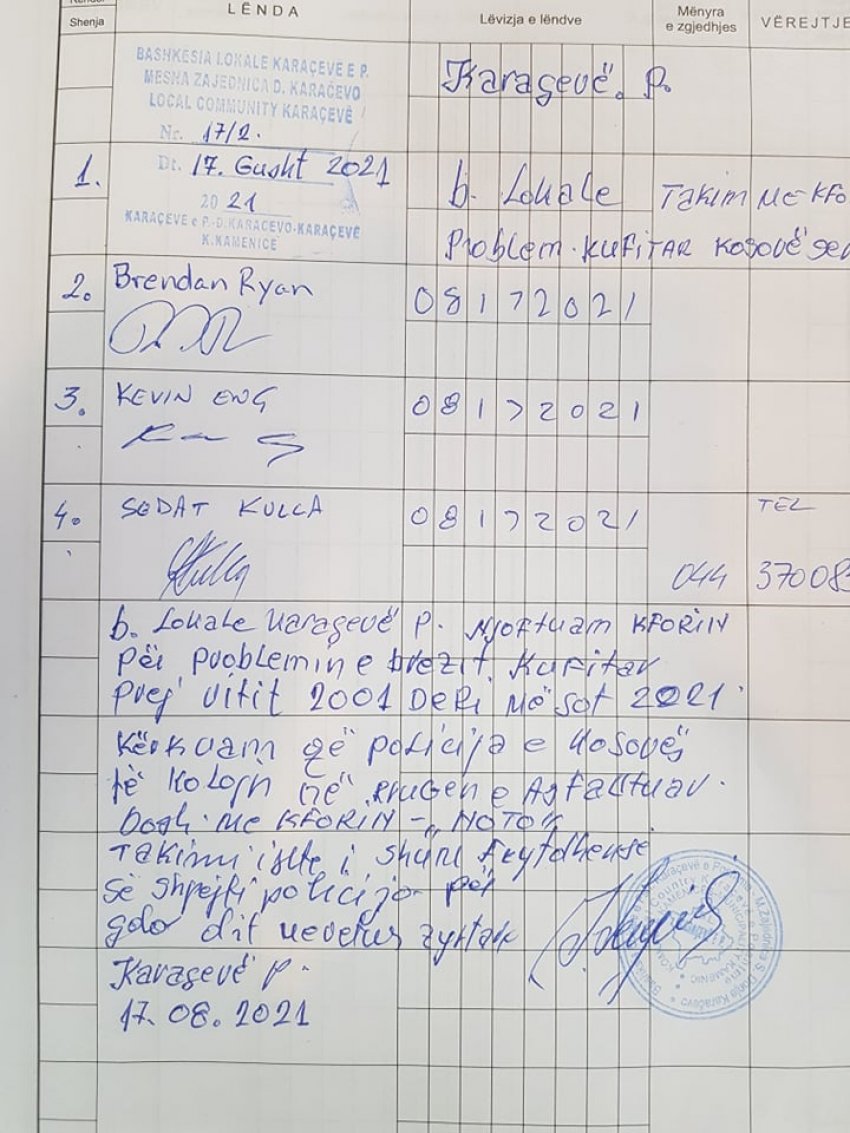 Shenja
LËNDA
Lëvizja e lëndve
Mënyra
e zgjedhjes
VËREJTJE
BASHKËSIA LOKALE KARAÇEVE E P.
MESNA ZAJEDNICA D. KARAČEVO
LOCAL COMMUNITY KARAÇEVË
Nr. 17/2.
Karaçevë. P.
1.
Dt. 17. Gusht 2021
20 21
KARAÇEVE e P.-D.KARAČEVO-KARAÇEVË
K.KAMENICË
b. Lokale TAKIM ME KFO
Problem. KUFITAR KOSOVË
2. Brendan Ryan 08172021
3. KEVIN ENG 08172021
4. SEDAT KULLA 08172021
TEL
044 37008
b. Lokale Karaçevë P. Njoftuam KFORIN
për problemin e brezit. Kufitar
prej vitit 2001 DERI MË sot 2021.
Kërkuam që policija e Kosovës
të në rrugen e Asfalltuar.
Bashk. ME KFORIN - "
Takimi ishte i
së shpejti policija për
çdo dit
Karaçevë P.
17. 08. 2021